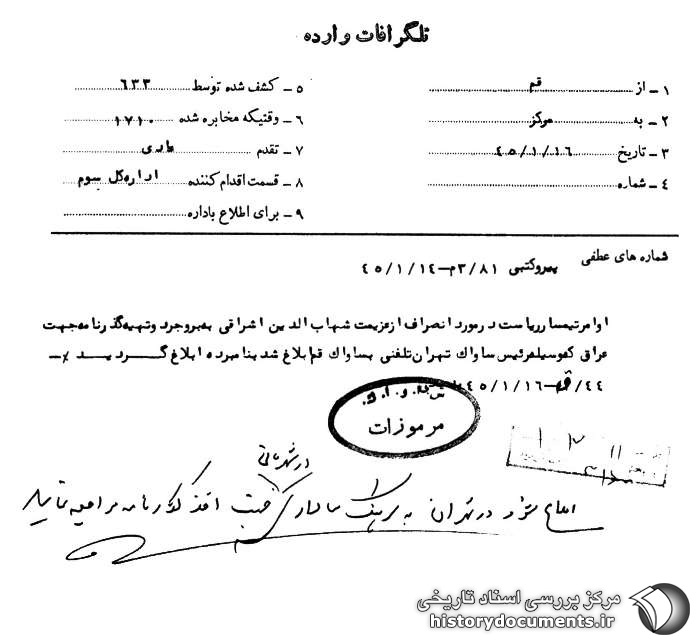 تلگرافات وارده
۱ـ از قم
۲ـ به مرکز
۳ـ تاریخ ۴۵/۱/۱۶
۴ـ شماره
۵ـ کشف شده توسط ۶۳۳
۶ـ وقتیکه مخابره شده ۱۷۱۰
۷ـ تقدم عادی
۸ـ قسمت اقدام کننده اداره کل سوم
۹ـ برای اطلاع باداره
شماره های عطفی پیروکتبی ۳/۸۱م-۴۵/۱/۱۴
اوامر تیمسار ریاست در مورد انصراف از عزیمت شهاب الدین اشراقی به بروجرد وتهیه گذرنامه جهت
عراق که وسیله رئیس ساواک تهران تلفنی بساواک قم ابلاغ شد بنامبرده ابلاغ گردید ٪-
۴۴/ق-۴۵/۱/۱۶
مرموزات
۱۲ ۱۱
در شهربانی
اعلام شود در تهران به سرهنگ سالاری جهت اخذ گذرنامه مراجعه نماید
مرکز بررسی اسناد تاریخی
historydocuments.ir